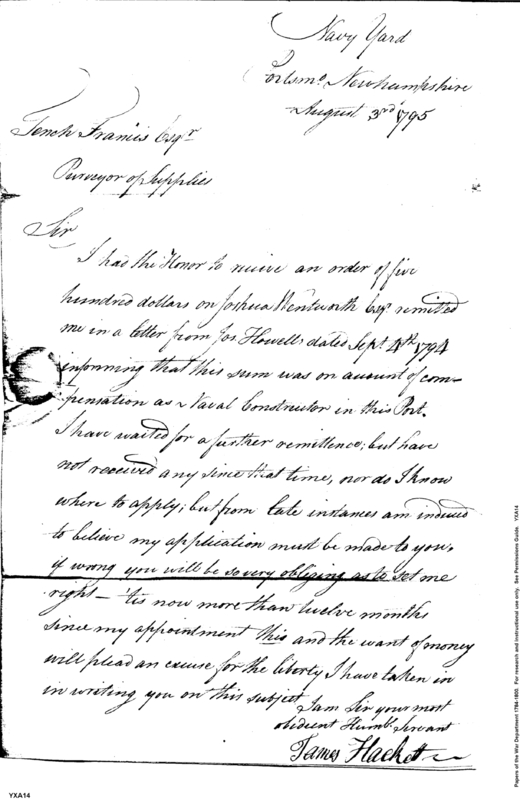 Navy Yard
Portsmo. Newhampshire
August 3rd 1795
Tench Francis Esqr
Purveyor of Supplies
Sir
I had the Honor to recive an order of five
hundred dollars on Joshua Wentworth Esqr. remitted
me in a letter from Jos. Howells dated Sept. 4th 1794
informing that this sum was on account of com-
pensation as a Naval Constructor in this Port.
I have waited for a further remittence; but have
not received any since that time, nor do I know
where to apply; but from late instances am induced
to believe my application must be made to you,
if wrong you will be so very obliging as to set me
right — 'tis now more than twelve months
since my appointment this and the want of money
will plead an excuse for the liberty I have taken in
in writing you on this subject
I am Sir your most
obedient Humbl. Servant
James Hackett
YXA14
Papers of the War Department 1784-1800. For research and instructional use only. See Permissions Guide. YXA14